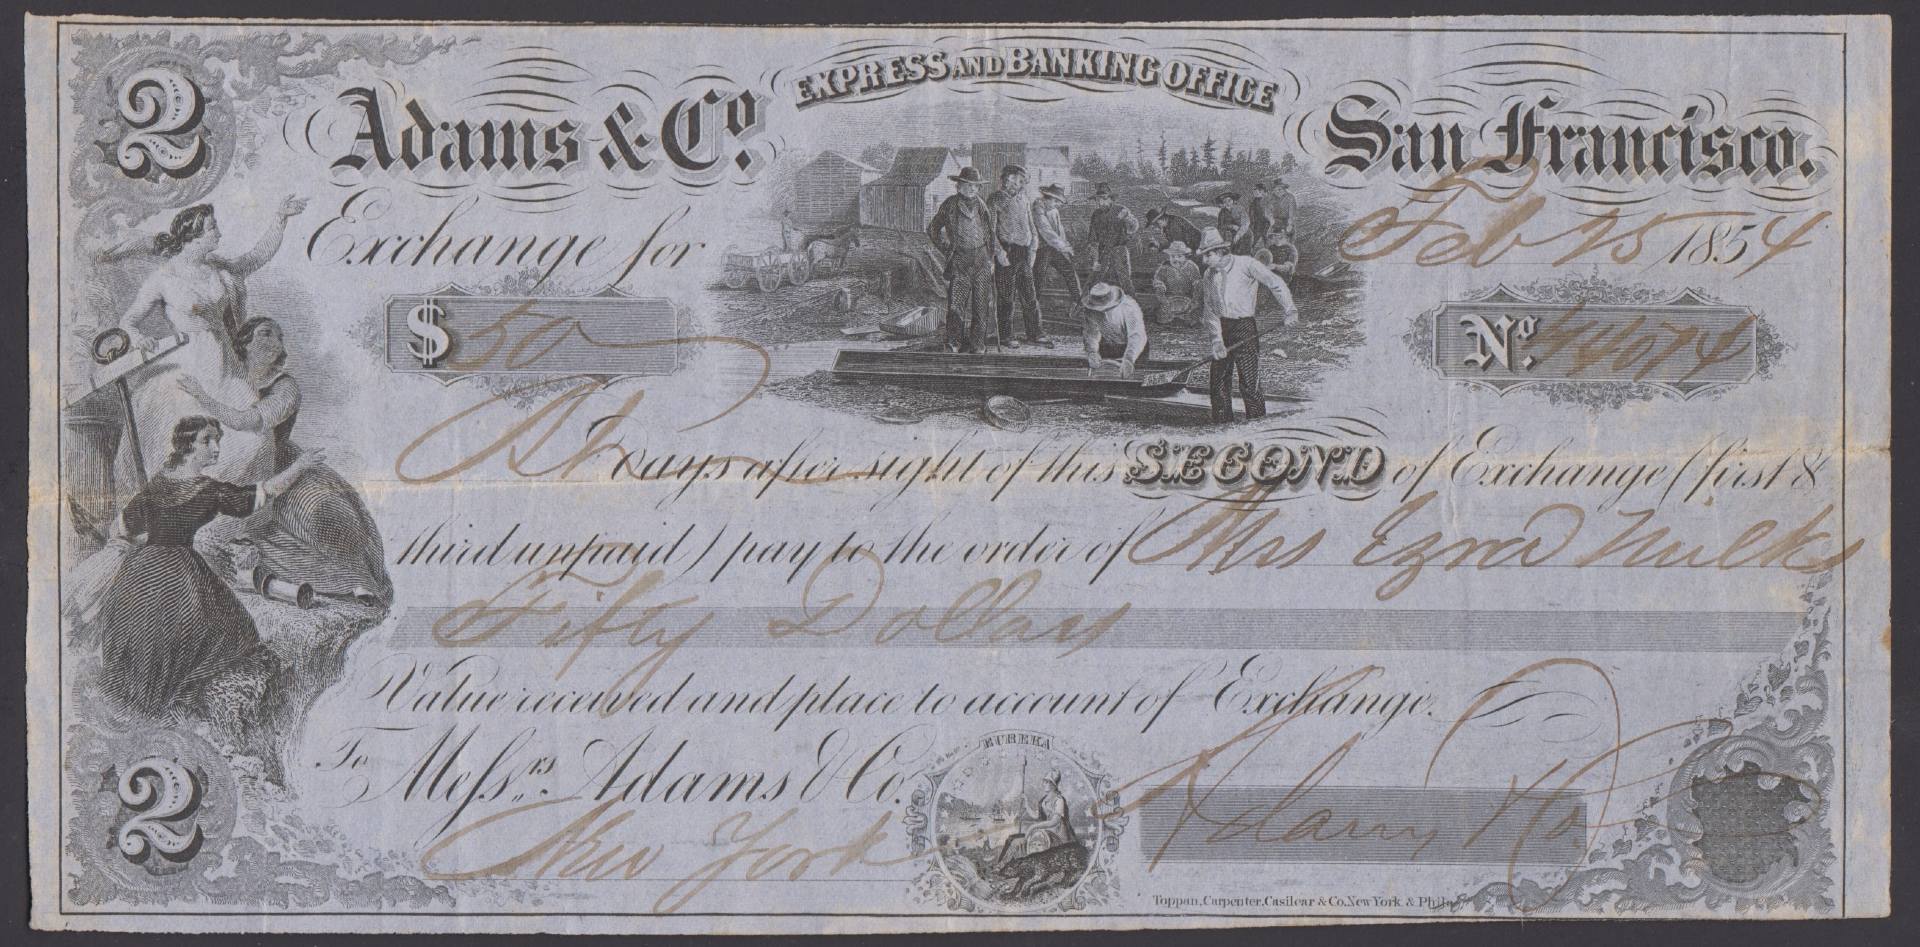 2
EXPRESS AND BANKING OFFICE
Adams & Co. San Francisco.
Exchange for Feb 25 1854
$ 50 No. 44074
Days after sight of this SECOND of Exchange (first &
third unpaid) pay to the order of Mrs Ezra Wilks
Fifty Dollars
Value received and place to account of Exchange.
To Messrs. Adams & Co. EUREKA Adams & Co
2 New York
Toppan, Carpenter, Casilear & Co. New York & Phila